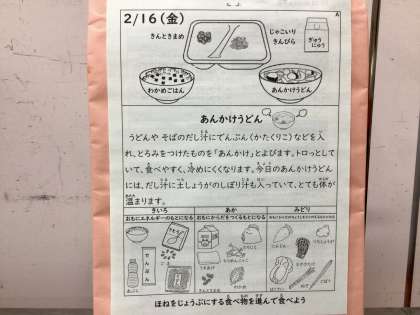 2/16(金)
A
きんときまめ
じゃこいり
きんぴら
ぎゅう
にゅう
わかめごはん
あんかけうどん
あんかけうどん
うどんや そばのだし汁にでんぷん(かたくりこ)などを入
れ、とろみをつけたものを「あんかけ」とよびます。トロっとして
いて、食べやすく、冷めにくくなります。今日のあんかけうどん
には、だし汁に土しょうがのしぼり汁も入っていて、とても体が
温まります。
きいろ
あか
みどり
おもにエネルギーのもとになる
おもにからだをつくるもとになる
でんぷん
ほねをじょうぶにする食べ物を進んで食べよう